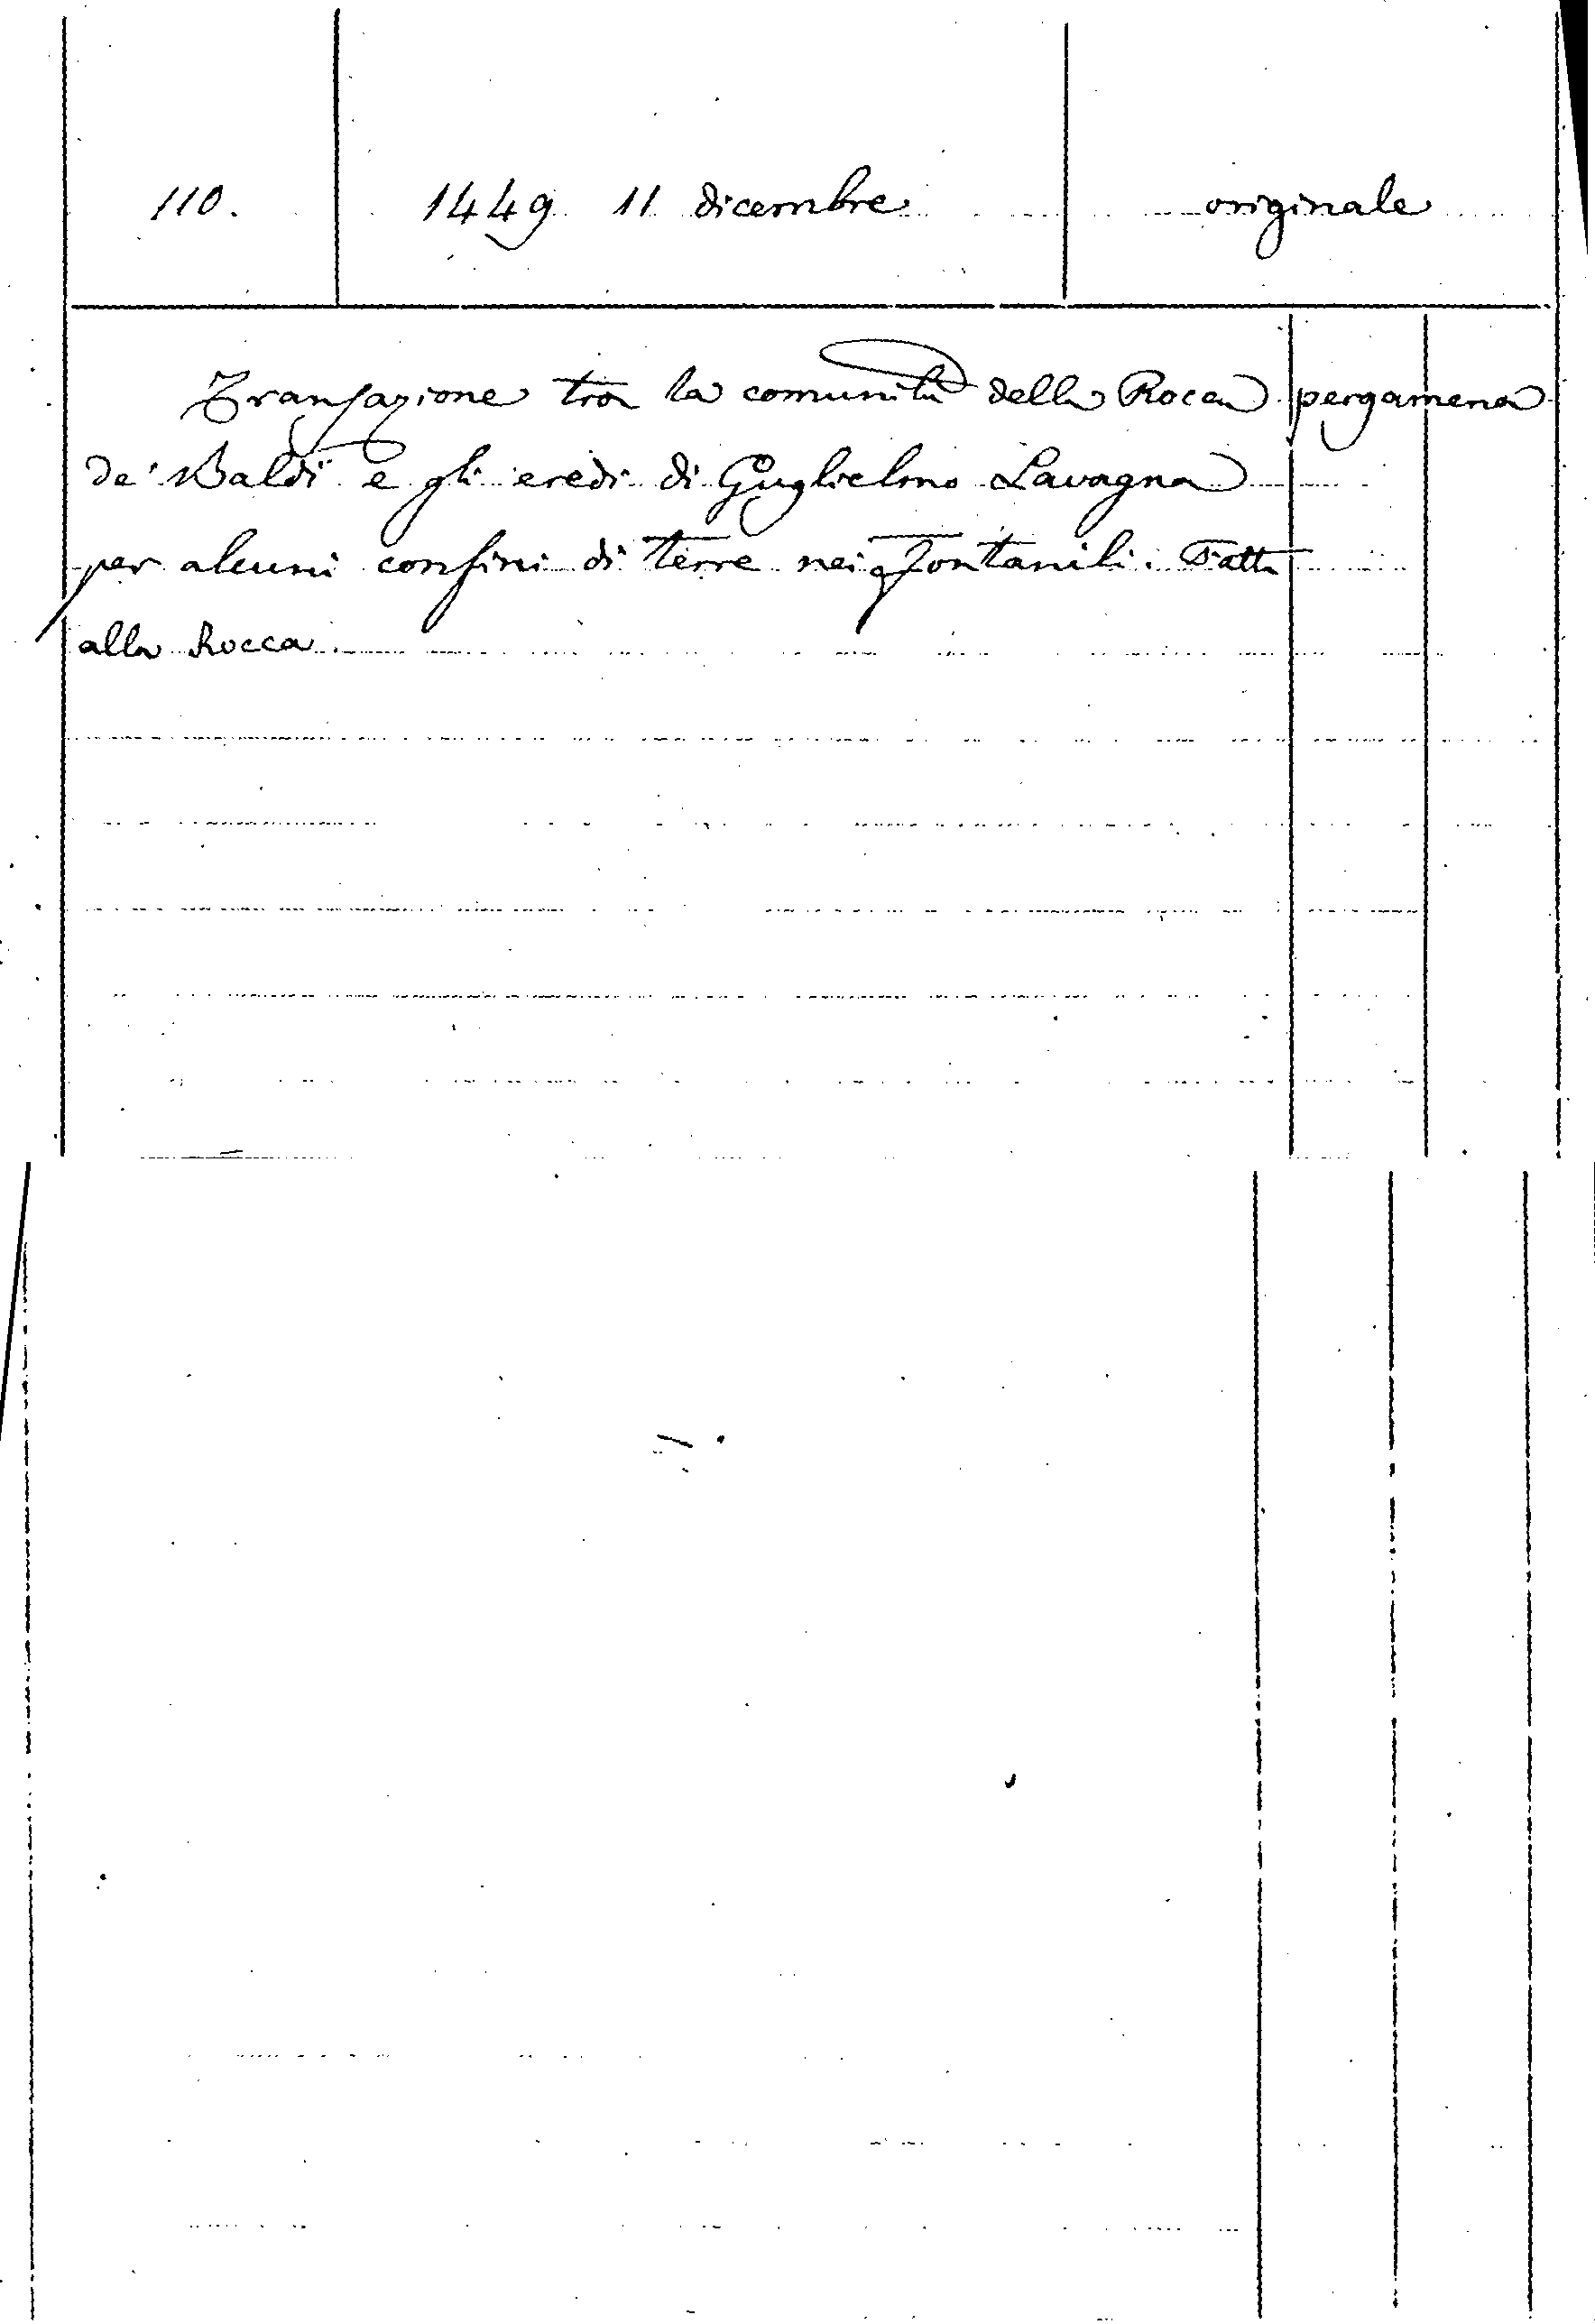 110. 1449 11 dicembre originale
Transazione tra la comunità della Rocca pergamena
de' Baldi e gli eredi di Guglielmo Lavagna
per alcuni confini di terre nei fontanili. Fatta
alla Rocca.